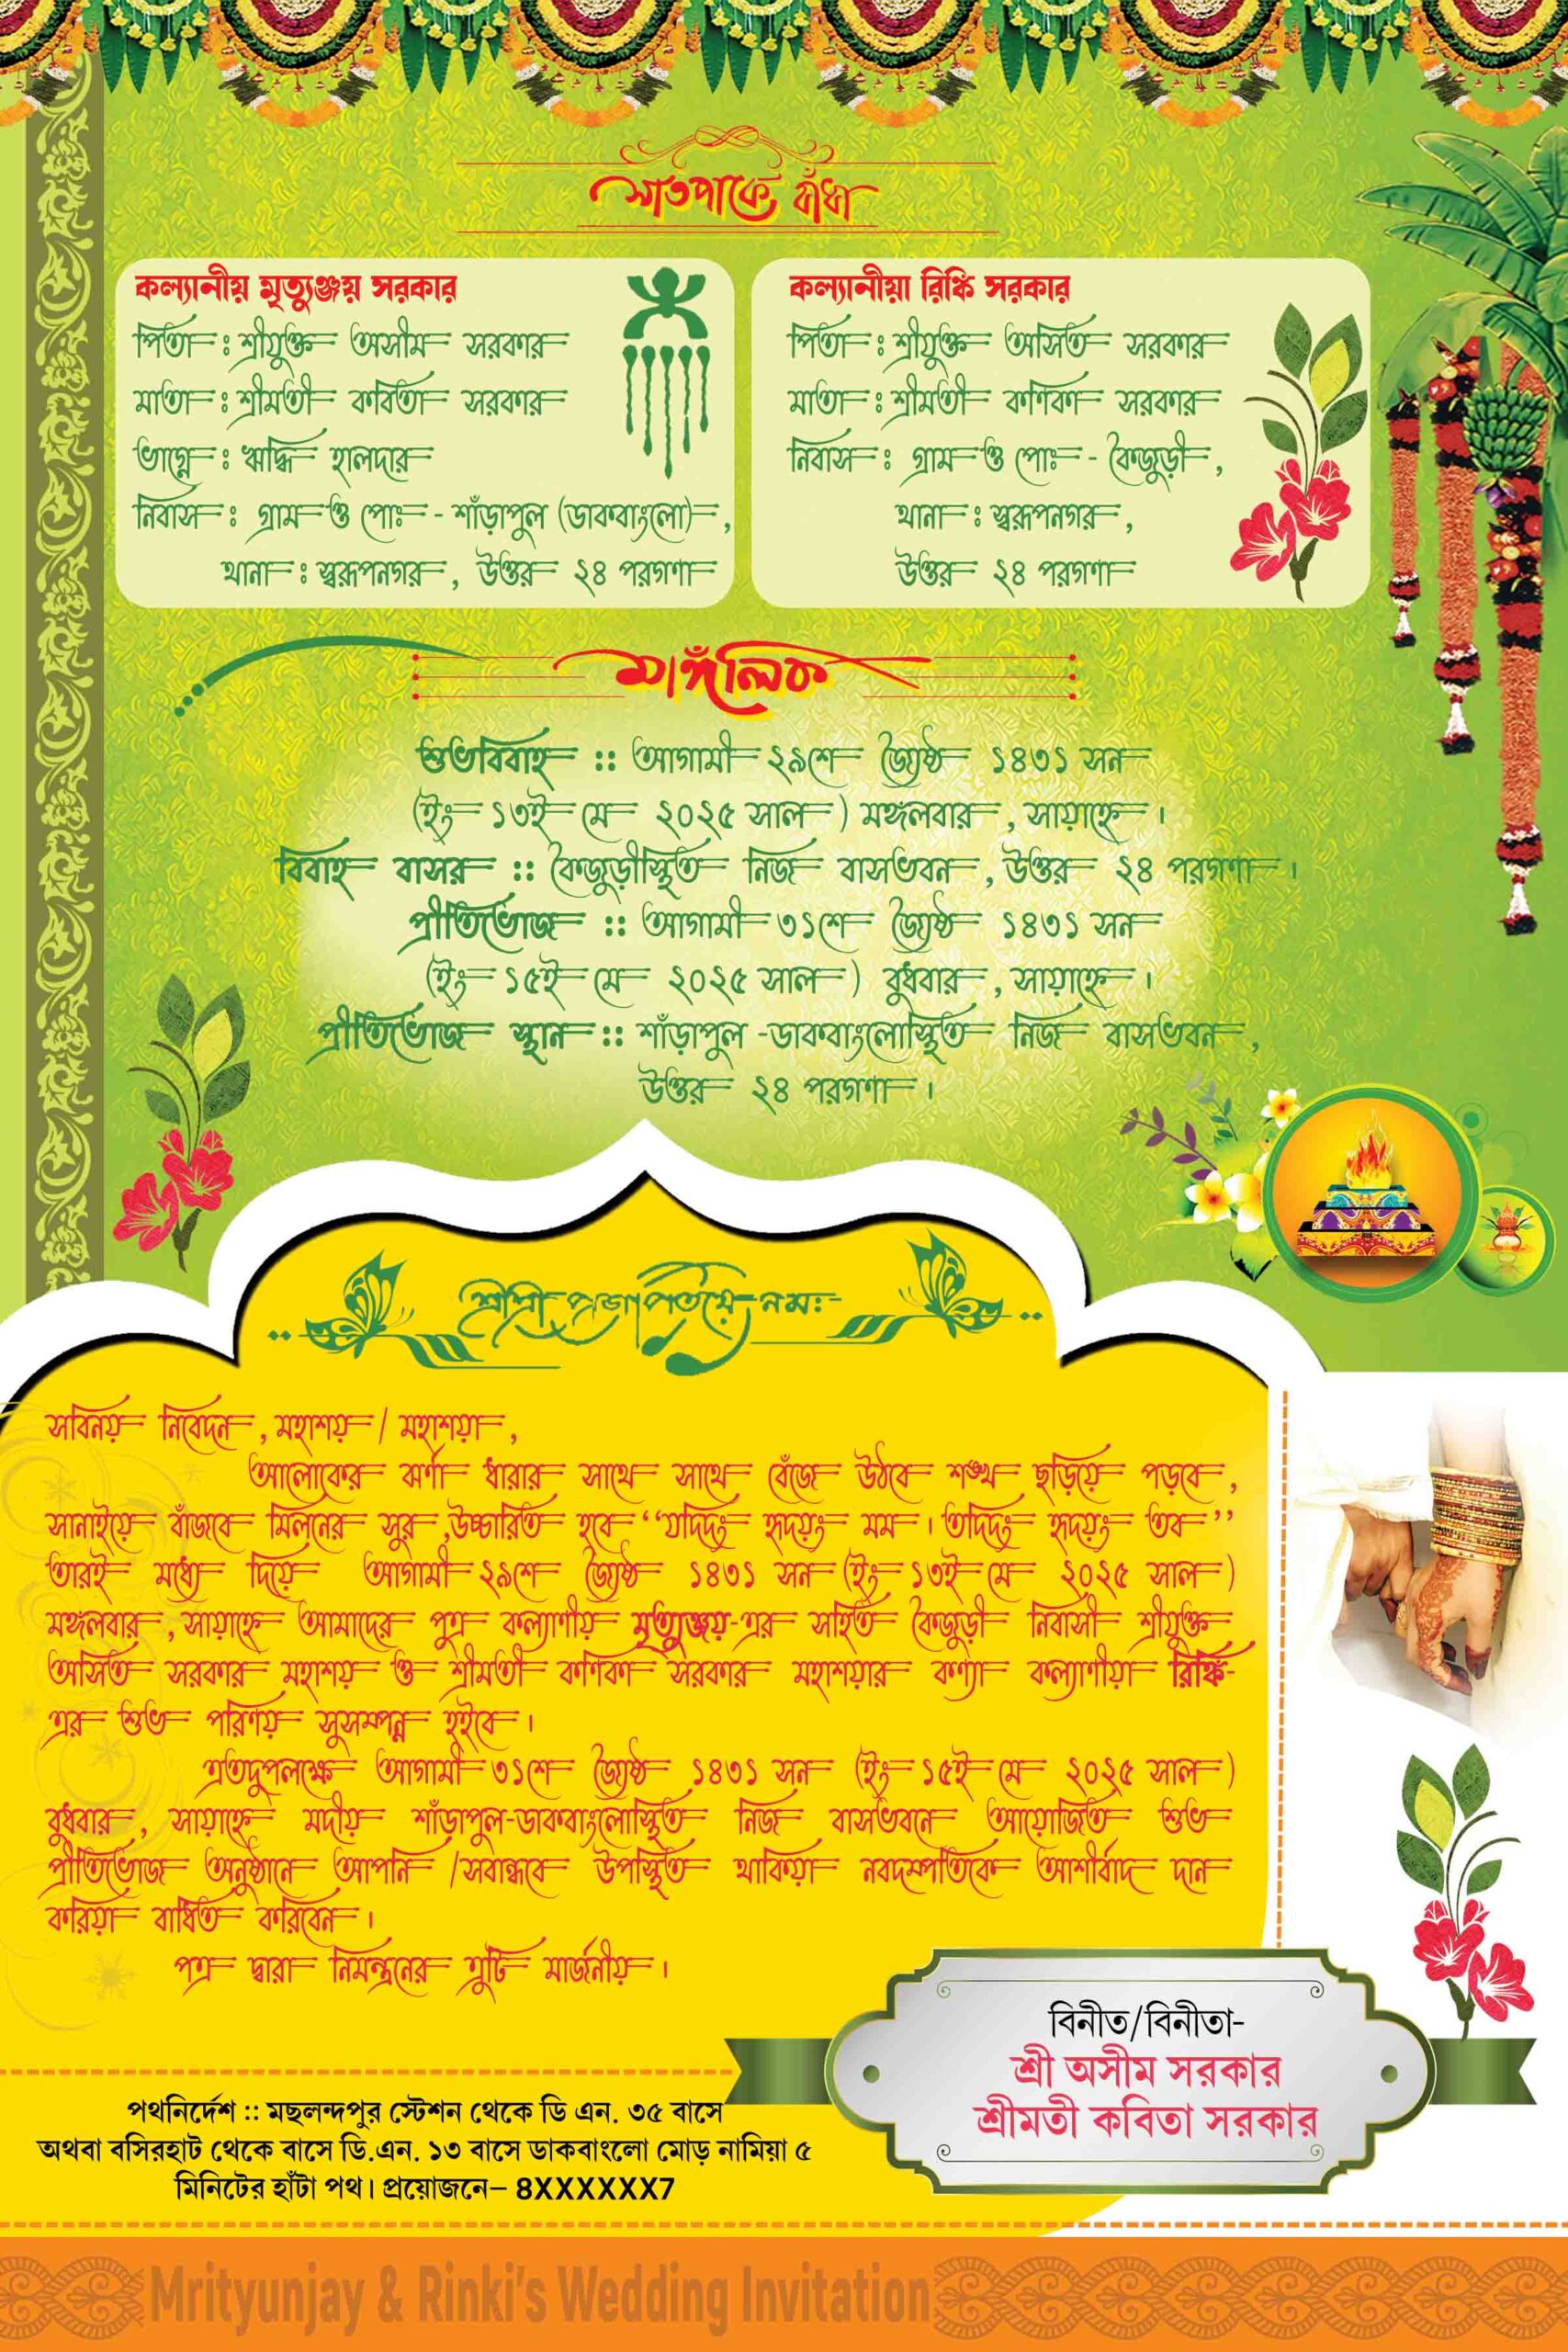 সাতপাকে বাঁধা
কল্যানীয় মৃত্যুঞ্জয় সরকার
পিতা : শ্রীযুক্ত অসীম সরকার
মাতা : শ্রীমতী কবিতা সরকার
ভাগ্নে : ঋদ্ধি হালদার
নিবাস : গ্রাম ও পোঃ - শাঁড়াপুল (ডাকবাংলো),
থানা : স্বরূপনগর, উত্তর ২৪ পরগণা
কল্যানীয়া রিঙ্কি সরকার
পিতা : শ্রীযুক্ত অসিত সরকার
মাতা : শ্রীমতী কণিকা সরকার
নিবাস : গ্রাম ও পোঃ - কৈজুড়ী,
থানা : স্বরূপনগর,
উত্তর ২৪ পরগণা
মাঙ্গঁলিক
শুভবিবাহ :: আগামী ২৯শে জ্যৈষ্ঠ ১৪৩১ সন
(ইং ১৩ই মে ২০২৫ সাল) মঙ্গলবার, সায়াহ্নে।
বিবাহ বাসর :: কৈজুড়ীস্থিত নিজ বাসভবন, উত্তর ২৪ পরগণা।
প্রীতিভোজ :: আগামী ৩১শে জ্যৈষ্ঠ ১৪৩১ সন
(ইং ১৫ই মে ২০২৫ সাল) বুধবার, সায়াহ্নে।
প্রীতিভোজ স্থান :: শাঁড়াপুল -ডাকবাংলোস্থিত নিজ বাসভবন,
উত্তর ২৪ পরগণা।
শ্রীশ্রী প্রজাপতয়ে নমঃ-
সবিনয় নিবেদন, মহাশয় / মহাশয়া,
আলোকের ঝর্ণা ধারার সাথে সাথে বেঁজে উঠবে শঙ্খ ছড়িয়ে পড়বে,
সানাইয়ে বাঁজবে মিলনের সুর ,উচ্চারিত হবে “যদিদং হৃদয়ং মম। তদিদং হৃদয়ং তব”
তারই মধ্যে দিয়ে আগামী ২৯শে জ্যৈষ্ঠ ১৪৩১ সন (ইং ১৩ই মে ২০২৫ সাল)
মঙ্গলবার, সায়াহ্নে আমাদের পুত্র কল্যাণীয় মৃত্যুঞ্জয়-এর সহিত কৈজুড়ী নিবাসী শ্রীযুক্ত
অসিত সরকার মহাশয় ও শ্রীমতী কণিকা সরকার মহাশয়ার কণ্যা কল্যাণীয়া রিঙ্কি-
এর শুভ পরিণয় সুসম্পন্ন হইবে।
এতদুপলক্ষে আগামী ৩১শে জ্যৈষ্ঠ ১৪৩১ সন (ইং ১৫ই মে ২০২৫ সাল)
বুধবার, সায়াহ্নে মদীয় শাঁড়াপুল-ডাকবাংলোস্থিত নিজ বাসভবনে আয়োজিত শুভ
প্রীতিভোজ অনুষ্ঠানে আপনি /সবান্ধবে উপস্থিত থাকিয়া নবদম্পতিকে আশীর্বাদ দান
করিয়া বাধিত করিবেন।
পত্র দ্বারা নিমন্ত্রনের ত্রুটি মার্জনীয়।
বিনীত/বিনীতা-
শ্রী অসীম সরকার
শ্রীমতী কবিতা সরকার
পথনির্দেশ :: মছলন্দপুর স্টেশন থেকে ডি এন. ৩৫ বাসে
অথবা বসিরহাট থেকে বাসে ডি.এন. ১৩ বাসে ডাকবাংলো মোড় নামিয়া ৫
মিনিটের হাঁটা পথ। প্রয়োজনে– 8XXXXXX7
Mrityunjay & Rinki's Wedding Invitation